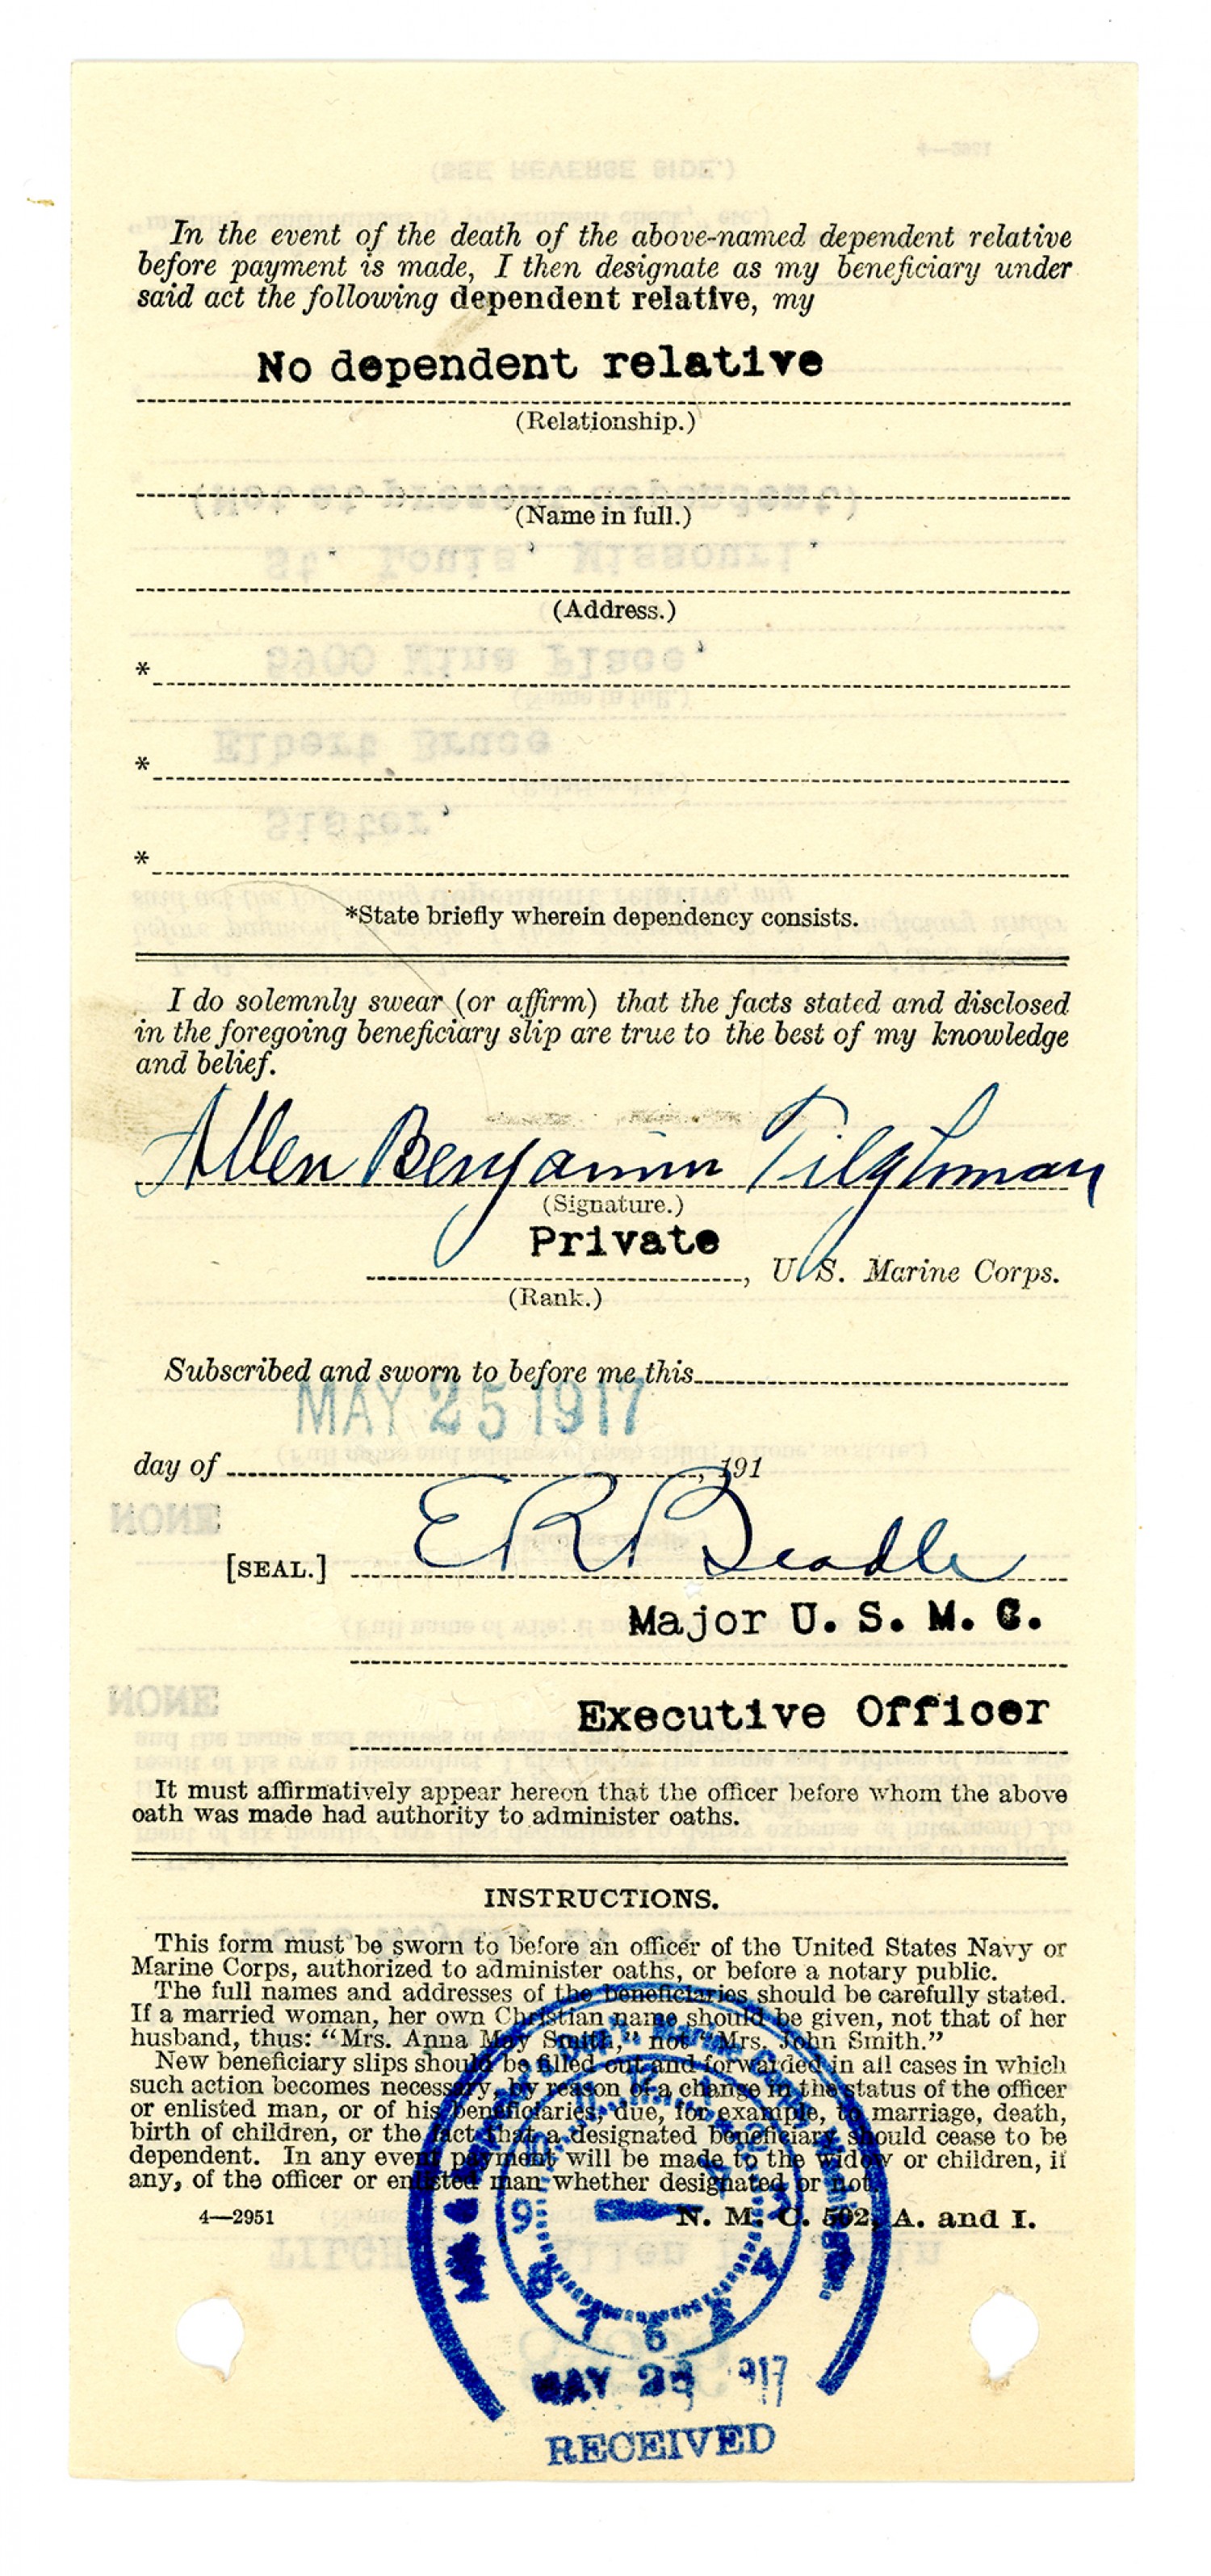 In the event of the death of the above-named dependent relative
before payment is made, I then designate as my beneficiary under
said act the following dependent relative, my
No dependent relative
(Relationship.)
(Name in full.)
(Address.)
*
*
*
*State briefly wherein dependency consists.
I do solemnly swear (or affirm) that the facts stated and disclosed
in the foregoing beneficiary slip are true to the best of my knowledge
and belief.
Allen Benjamin Tilghman
(Signature.)
Private
, U. S. Marine Corps.
(Rank.)
Subscribed and sworn to before me this
MAY 25 1917
day of , 191
[SEAL.] E R Beadle
Major U. S. M. C.
Executive Officer
It must affirmatively appear hereon that the officer before whom the above
oath was made had authority to administer oaths.
INSTRUCTIONS.
This form must be sworn to before an officer of the United States Navy or
Marine Corps, authorized to administer oaths, or before a notary public.
The full names and addresses of the beneficiaries should be carefully stated.
If a married woman, her own Christian name should be given, not that of her
husband, thus: “Mrs. Anna May Smith,” not “Mrs. John Smith.”
New beneficiary slips should be filled out and forwarded in all cases in which
such action becomes necessary, by reason of a change in the status of the officer
or enlisted man, or of his beneficiaries, due, for example, to marriage, death,
birth of children, or the fact that a designated beneficiary should cease to be
dependent. In any event payment will be made to the widow or children, if
any, of the officer or enlisted man whether designated or not.
4—2951 N. M. C. 502, A. and I.
9 8 7 6 5 4
MAY 1917
RECEIVED